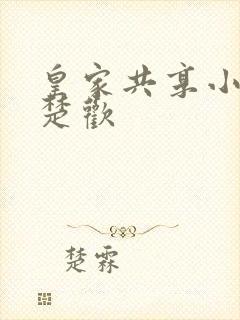 皇家共享小
楚歡
楚霖